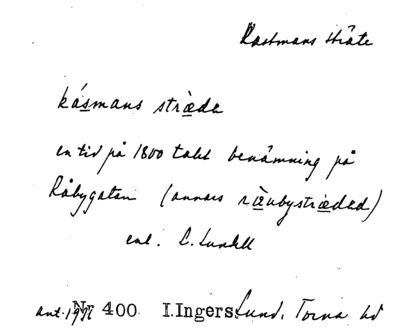 Rastmans sträte
kásmans stræde
en tid på 1800 talet benämning på
Råbygatan (annars ræubystræded)
enl. C. Lundell
ant. 1917 Nr 400 I.Ingers Lund. Torna hd